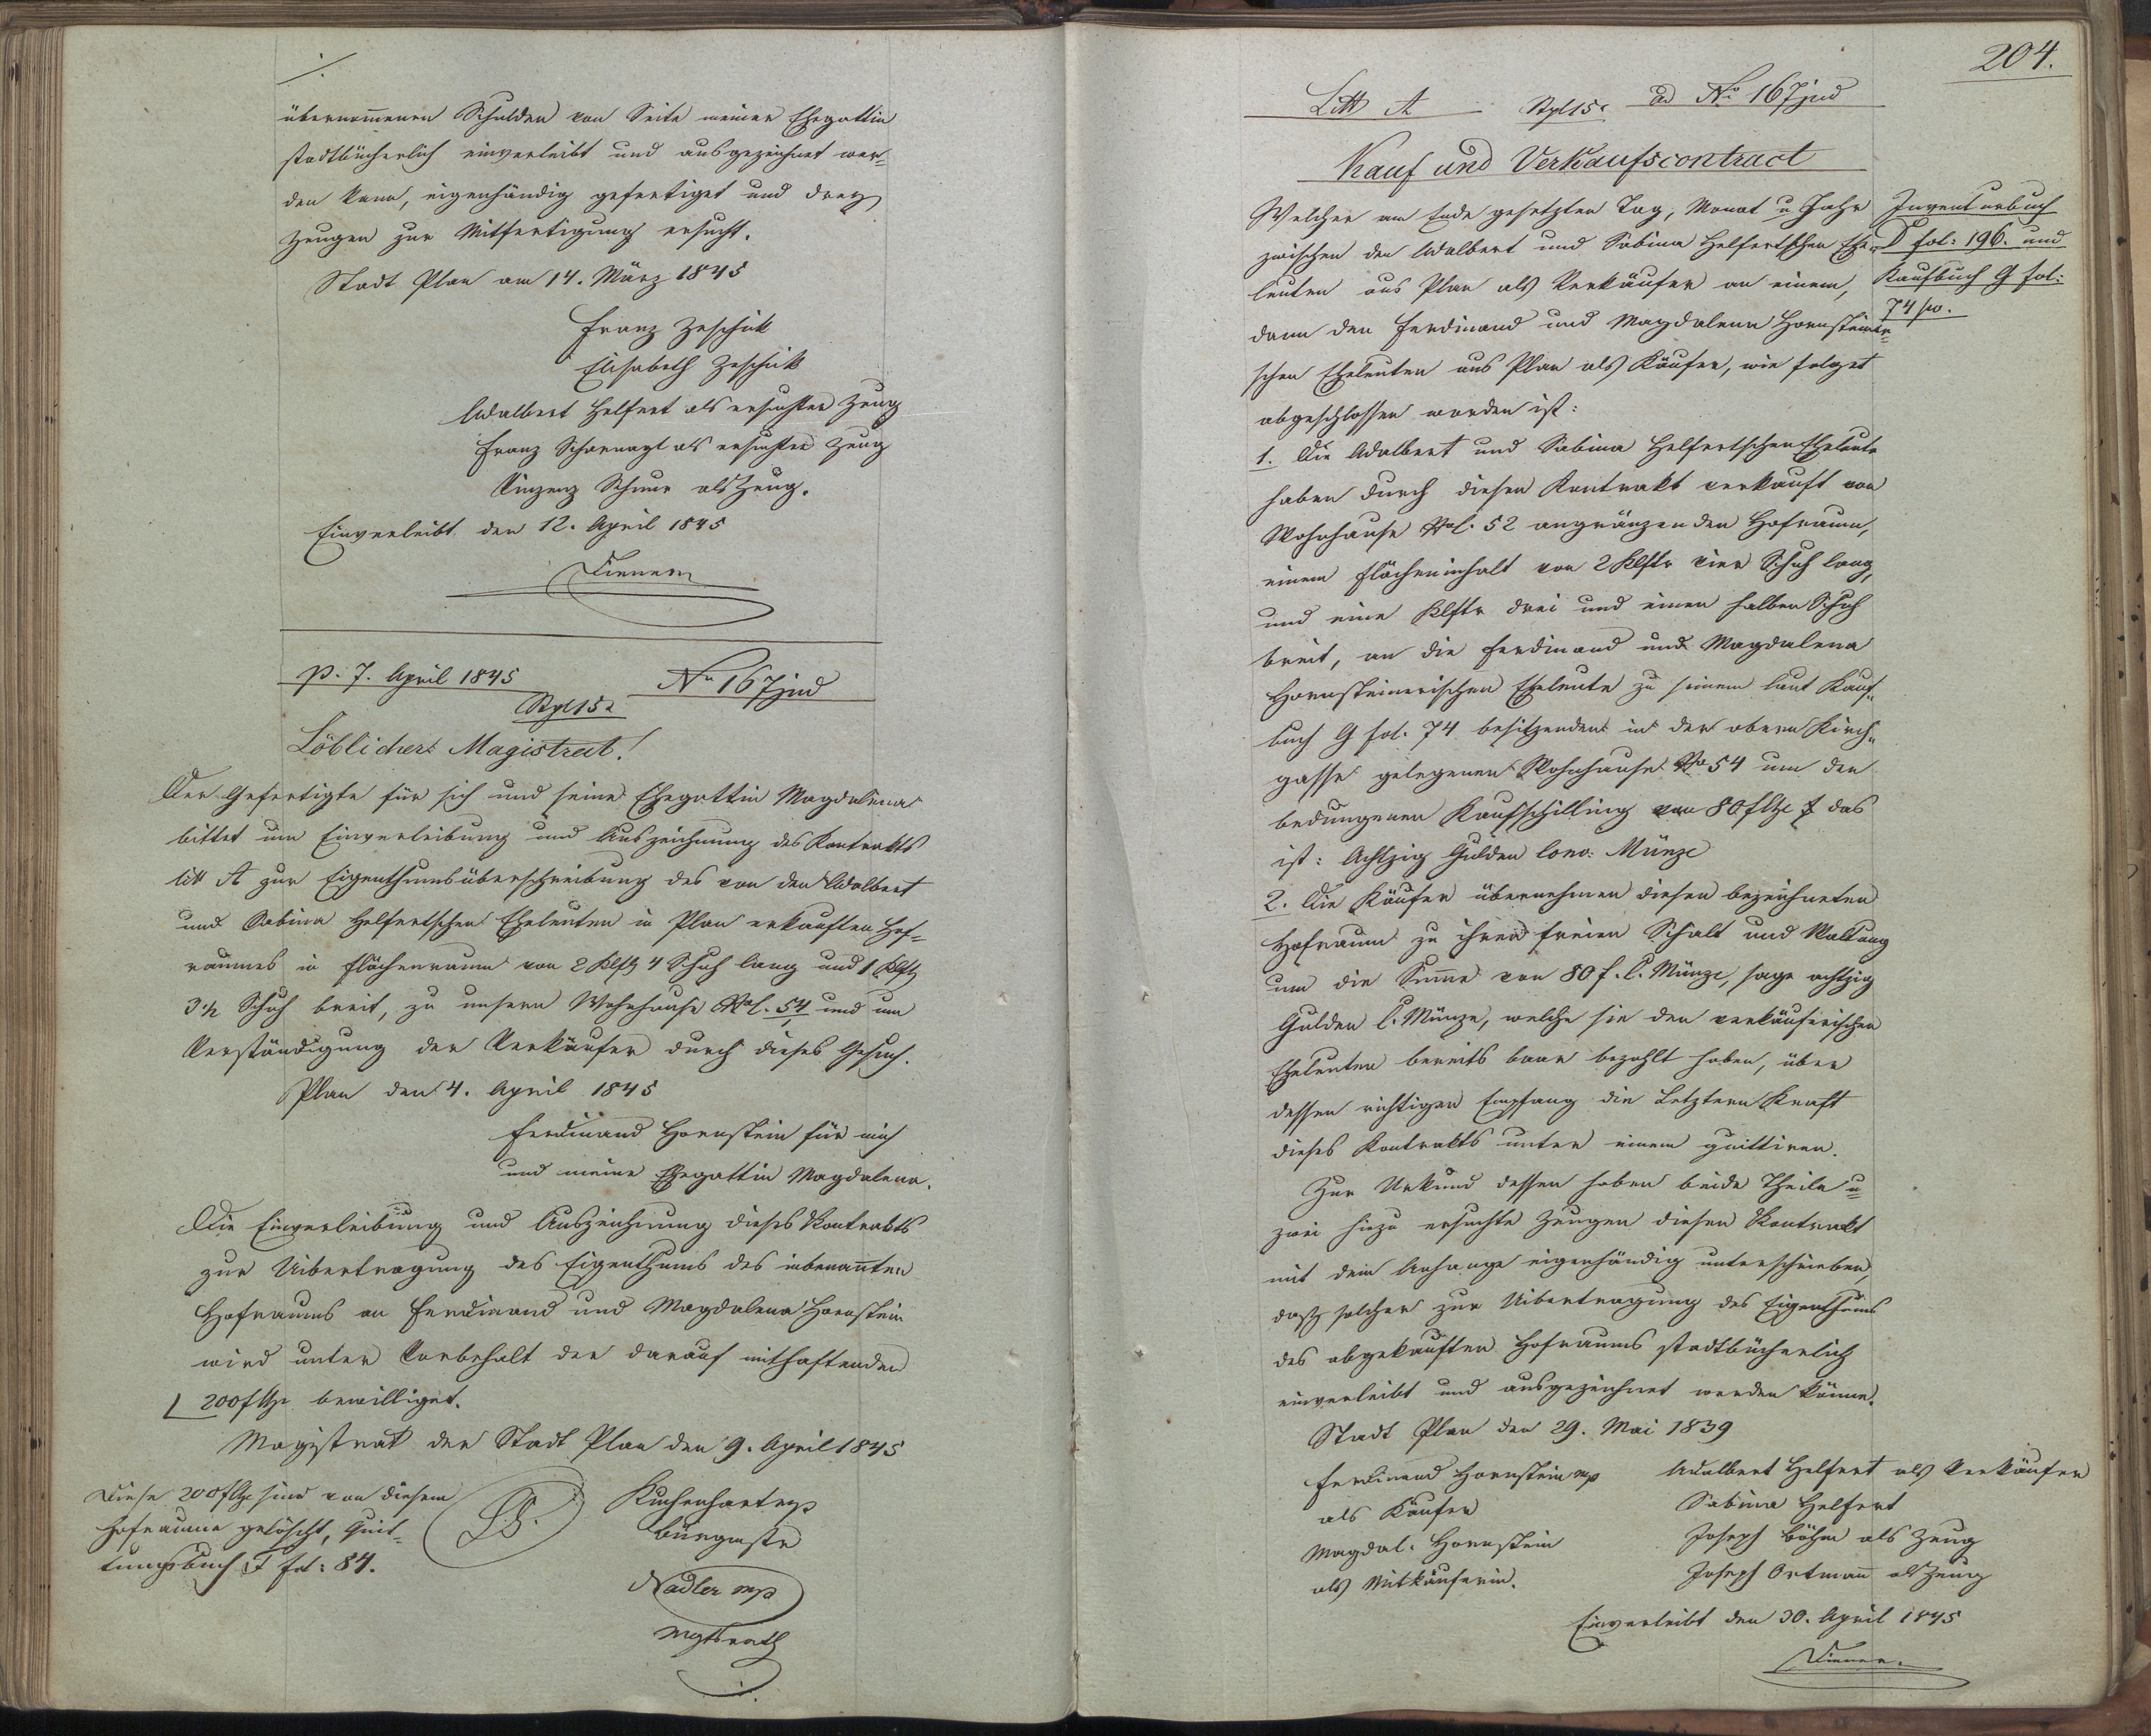 ./.
übernom̄enen Schulden von Seite meiner Ehegattin
stadtbücherlich einverleibt und ausgezeichnet wer-
den kann, eigenhändig gefertiget und drey
Zeugen zur Mitfertigung ersucht.
Stadt Plan am 14. März 1845
Franz Zeschik
Elisabeth Zeschik
Adalbert Helfert als ersuchter Zeug
Franz Scharnagl als ersuchter Zeug
Vinzenz Schnur als Zeug.
Einverleibt den 12. April 1845
Diener
p. 7. April 1845
No 167 jud
Stpl 15x
Löblicher Magistrat!
Der Gefertigte für sich und seine Ehegattin Magdalena
bittet um Einverleibung und Auszeichnung des Kontrakts
litt A zur Eigenthumsüberschreibung des von den Adalbert
und Sabina Helfertschen Eheleuten in Plan erkauften Hof-
raumes in Flächenraum von 2 Klftr 4 Schuh lang und 1 Klftr
3 1/2 Schuh breit, zu unserm Wohnhause No C. 54 und um
Verständigung der Verkäufer durch dieses Gesuch.
Plan den 4. April 1845
Ferdinand Hornstein für mich
und meine Ehegattin Magdalena.
Die Einverleibung und Auszeichnung dieses Kontrakts
zur Uibertragung des Eigenthums des inbenan̄ten
Hofraums an Ferdinand und Magdalena Hornstein
wird unter Vorbehalt der darauf mithaftenden
200 f CMze bewilliget.
Magistrat der Stadt Plan den 9. April 1845
Diese 200 f CMze sind von diesem
Hofraume gelöscht, Quit-
tungsbuch F fol: 84.
L.S.
Kuchenhart mp
Bürgmstr
Nadler mp
Mgtsrath
204.
Litt A Stpl 15x ad No 167 jud
Kauf und Verkaufscontract
Welcher am Ende gesetzten Tag, Monat u Jahr
zwischen den Adalbert und Sabina Helfertschen Ehe-
leuten aus Plan als Verkäufer an einem,
dann den Ferdinand und Magdalena Hornsteiner-
schen Eheleuten aus Plan als Käufer, wie folget
abgeschlossen worden ist:
Inventurbuch
D fol: 196. und
Kaufbuch G fol:
74 po.
1. Die Adalbert und Sabina Helfertschen Eheleute
haben durch diesen Kontrakt verkauft von
Wohnhause No C. 52 angränzenden Hofraum,
einem Flächeninhalt von 2 Klftr vier Schuh lang,
und eine Klftr drei und einen halben Schuh
breit, an die Ferdinand und Magdalena
Hornsteinerischen Eheleute zu seinem laut Kauf-
buch G fol. 74 besitzenden in der obern Kirch-
gasse gelegenen Wohnhause No 54 um den
bedungenen Kaufschilling von 80 f CMze das
ist: Achtzig Gulden Conv: Münze
2. Die Käufer übernehmen diesen bezeichneten
Hofraum zu ihrer freien Schalt und Waltung
um die Sum̄e von 80 f. C. Münze, sage achtzig
Gulden C. Münze, welche sie den verkäuferischen
Eheleuten bereits baar bezahlt haben, über
dessen richtigen Empfang die Letztern Kraft
dieses Kontrakts unter einem quittiren.
Zur Urkund dessen haben beide Theile u
zwei hiezu ersuchte Zeugen diesen Kontrakt
mit dem Anhange eigenhändig unterschrieben,
daß solcher zur Uibertragung des Eigenthums
des abgekauften Hofraums stadtbücherlich
einverleibt und ausgezeichnet werden könne.
Stadt Plan den 29. Mai 1839
Ferdinand Hornstein mp
als Käufer
Magdal. Hornstein
als Mitkäuferin.
Adalbert Helfert als Verkäufer
Sabina Helfert
Joseph Böhm als Zeug
Joseph Ortman̄ als Zeug
Einverleibt den 30. April 1845
Diener